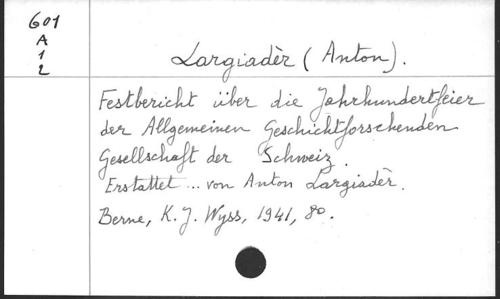 601
A
1
2
Largiadèr (Anton).
Festbericht über die Jahrhundertfeier
der Allgemeinen Geschichtforschenden
Gesellschaft der Schweiz.
Erstattet ... von Anton Largiadèr.
Berne, K. J. Wyss, 1941, 8o.